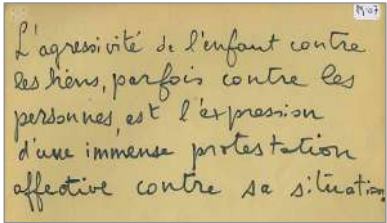 L'agressivité de l'enfant contre
les biens, parfois contre les
personnes, est l'expression
d'une immense protestation
affective contre sa situation.